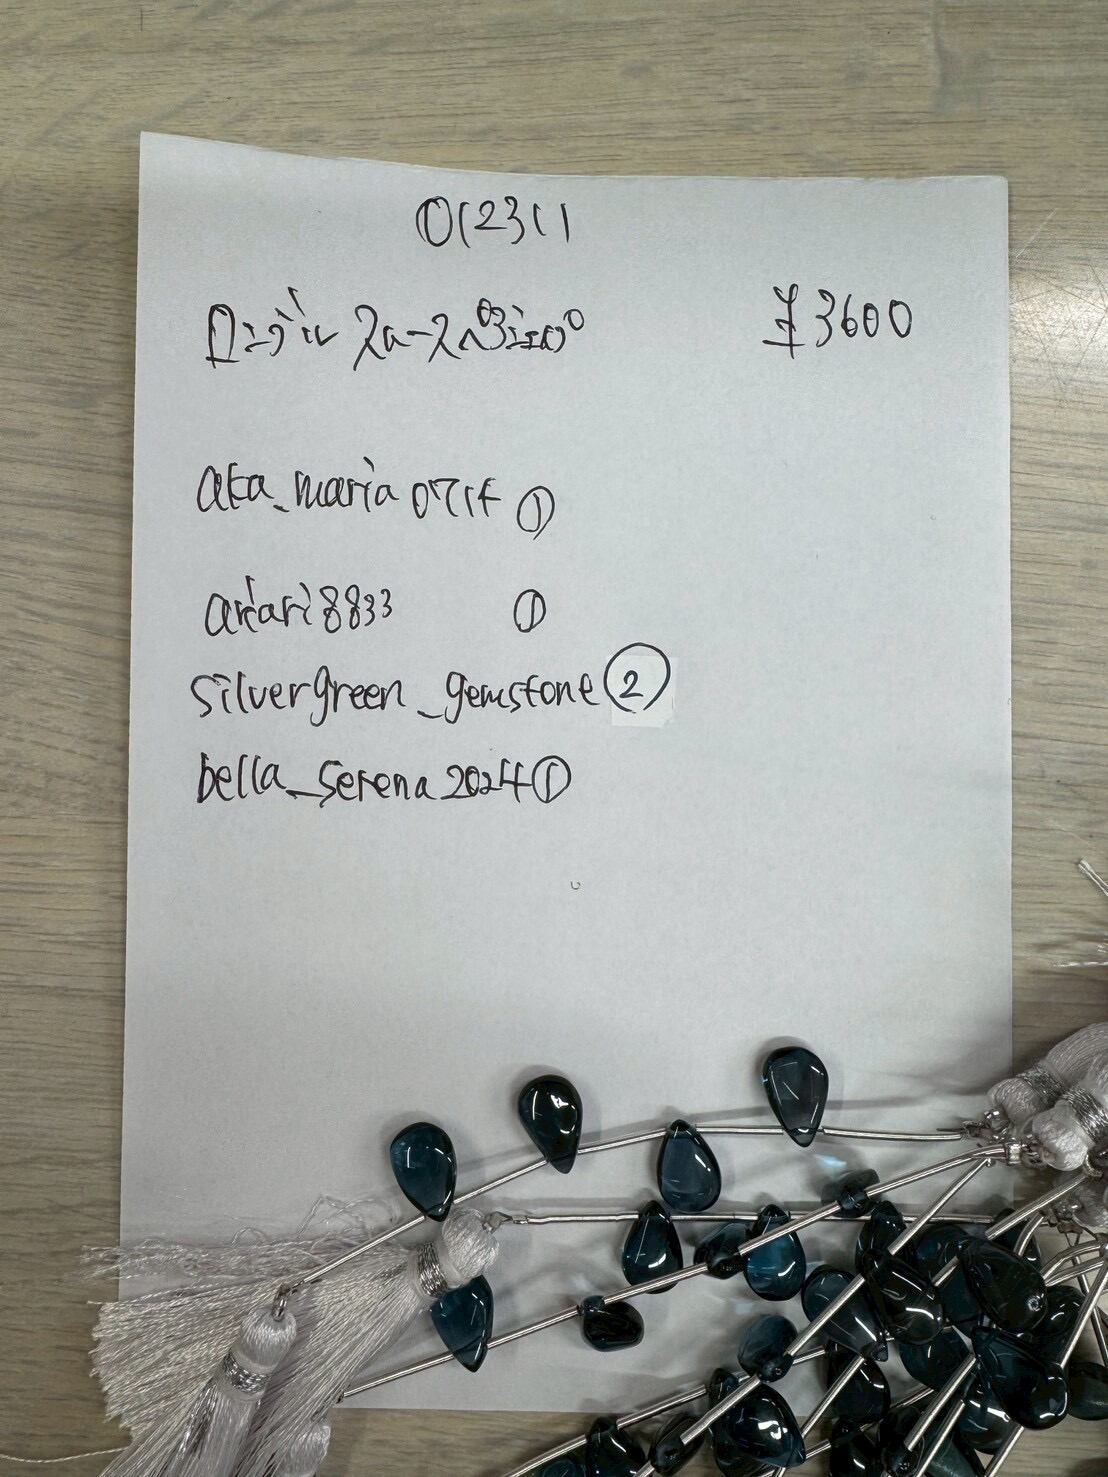 012311
ロンドンブルークオーツ
¥3600
aka_maria0714 ①
ariari8833 ①
silvergreen_gemstone ②
bella_serena2024 ①